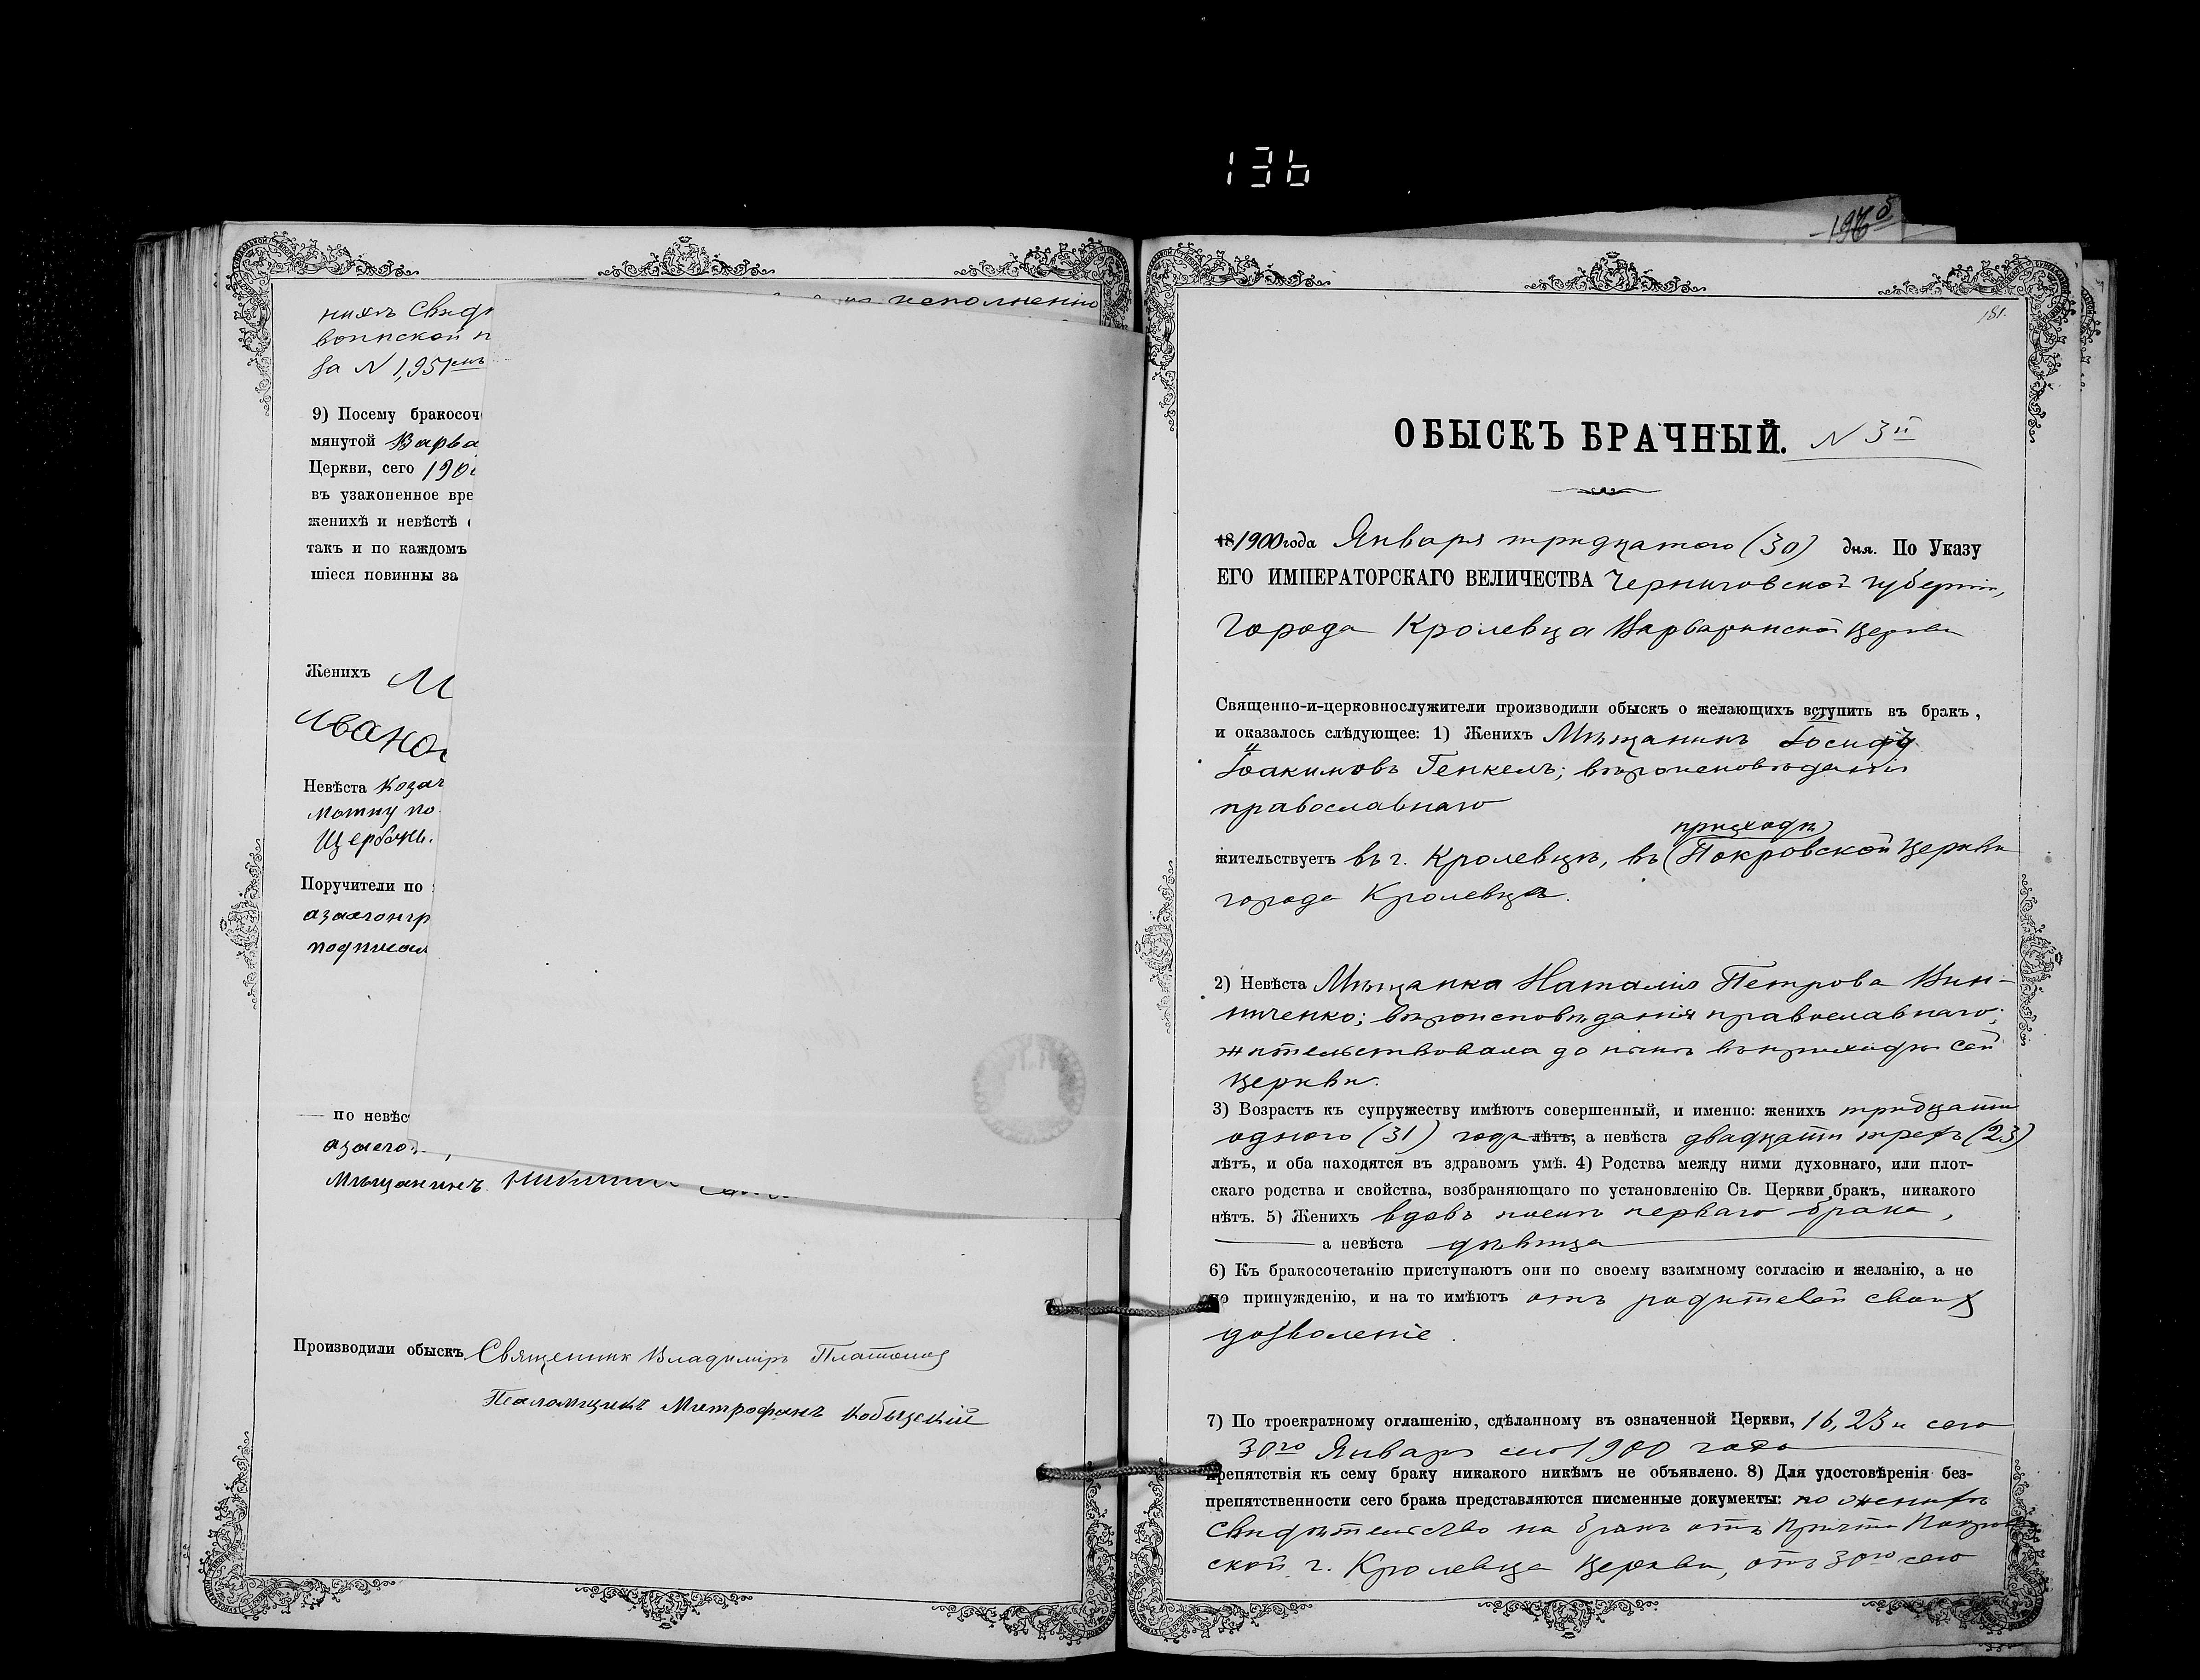 136
196б
нихъ Свид
исполненію
воинской п
за N 1,957емъ
9) Посему бракосоч
мянутой Варва
Церкви, сего 190
въ узаконенное вре
женихѣ и невѣстѣ
такъ и по каждомъ
шіеся повинны за
Женихъ
Ивано
Невѣста Козач
по
Щербань.
Поручители по
подписал
— по невѣс
Мѣщанинъ
Производили обыскъ Священник Владимір Платонов
Псаломщикъ Митрофанъ Кобыцскій
181.
ОБЫСКЪ БРАЧНЫЙ. N 3й
18 1900 года Января тридцатого (30) дня. По Указу
ЕГО ИМПЕРАТОРСКАГО ВЕЛИЧЕСТВА Черниговской губерніи,
Города Кролевца Варваринской Церкви
Священно-и-церковнослужители производили обыскъ о желающихъ вступить въ бракъ,
и оказалось слѣдующее: 1) Женихъ Мѣщанинъ Іосифъ
Іоакимовъ Генкель; вѣроисповѣданія
православнаго
приходѣ
жительствуетъ въ г. Кролевцѣ, въ Покровской Церкви
города Кролевца.
2) Невѣста Мѣщанка Наталія Петрова Вин-
ниченко; вѣроисповѣданія православнаго;
жительствовала до нынѣ въ приходѣ сей
Церкви.
3) Возрастъ къ супружеству имѣютъ совершенный, и именно: женихъ тридцати
одного (31) года лѣтъ, а невѣста двадцати трехъ (23)
лѣтъ, и оба находятся въ здравомъ умѣ. 4) Родства между ними духовнаго, или плот-
скаго родства и свойства, возбраняющаго по установленію Св. Церкви бракъ, никакого
нѣтъ. 5) Женихъ вдовъ послѣ перваго брака,
а невѣста дѣвица
6) Къ бракосочетанію приступаютъ они по своему взаимному согласію и желанію, а не
по принужденію, и на то имѣютъ отъ родителей своихъ
дозволеніе.
7) По троекратному оглашенію, сдѣланному въ означенной Церкви, 16, 23 и сего
30го Января сего 1900 года
препятствія къ сему браку никакого никѣмъ не объявлено. 8) Для удостовѣренія без-
препятственности сего брака представляются писменные документы: по женихѣ
свидѣтельство на бракъ отъ Причта Покров
ской г. Кролевца Церкви, отъ 30го сего